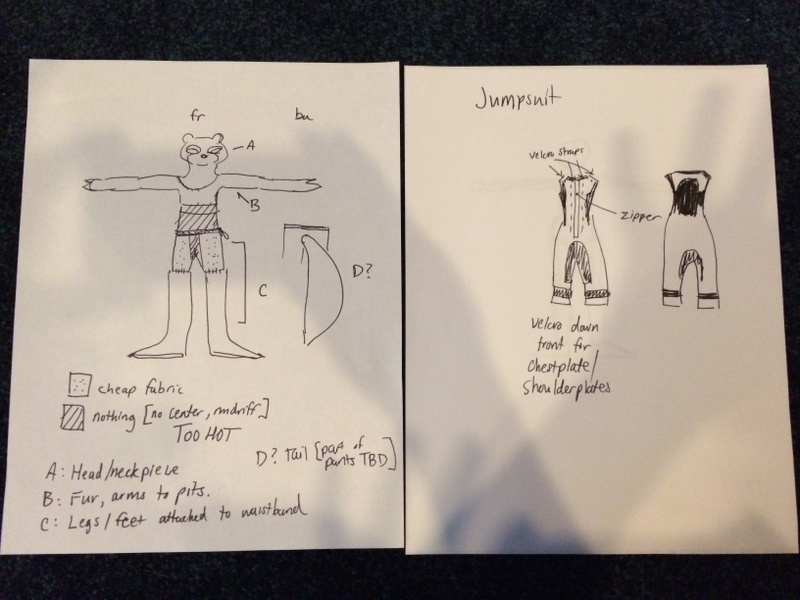 fr
ba
A
B
C
D?
cheap fabric
nothing [no center, midriff]
TOO HOT
D? Tail [part of
pants TBD]
A: Head/neckpiece
B: Fur, arms to pits.
C: Legs/feet attached to waistband
Jumpsuit
velcro straps
zipper
velcro down
front for
chestplate/
shoulderplates